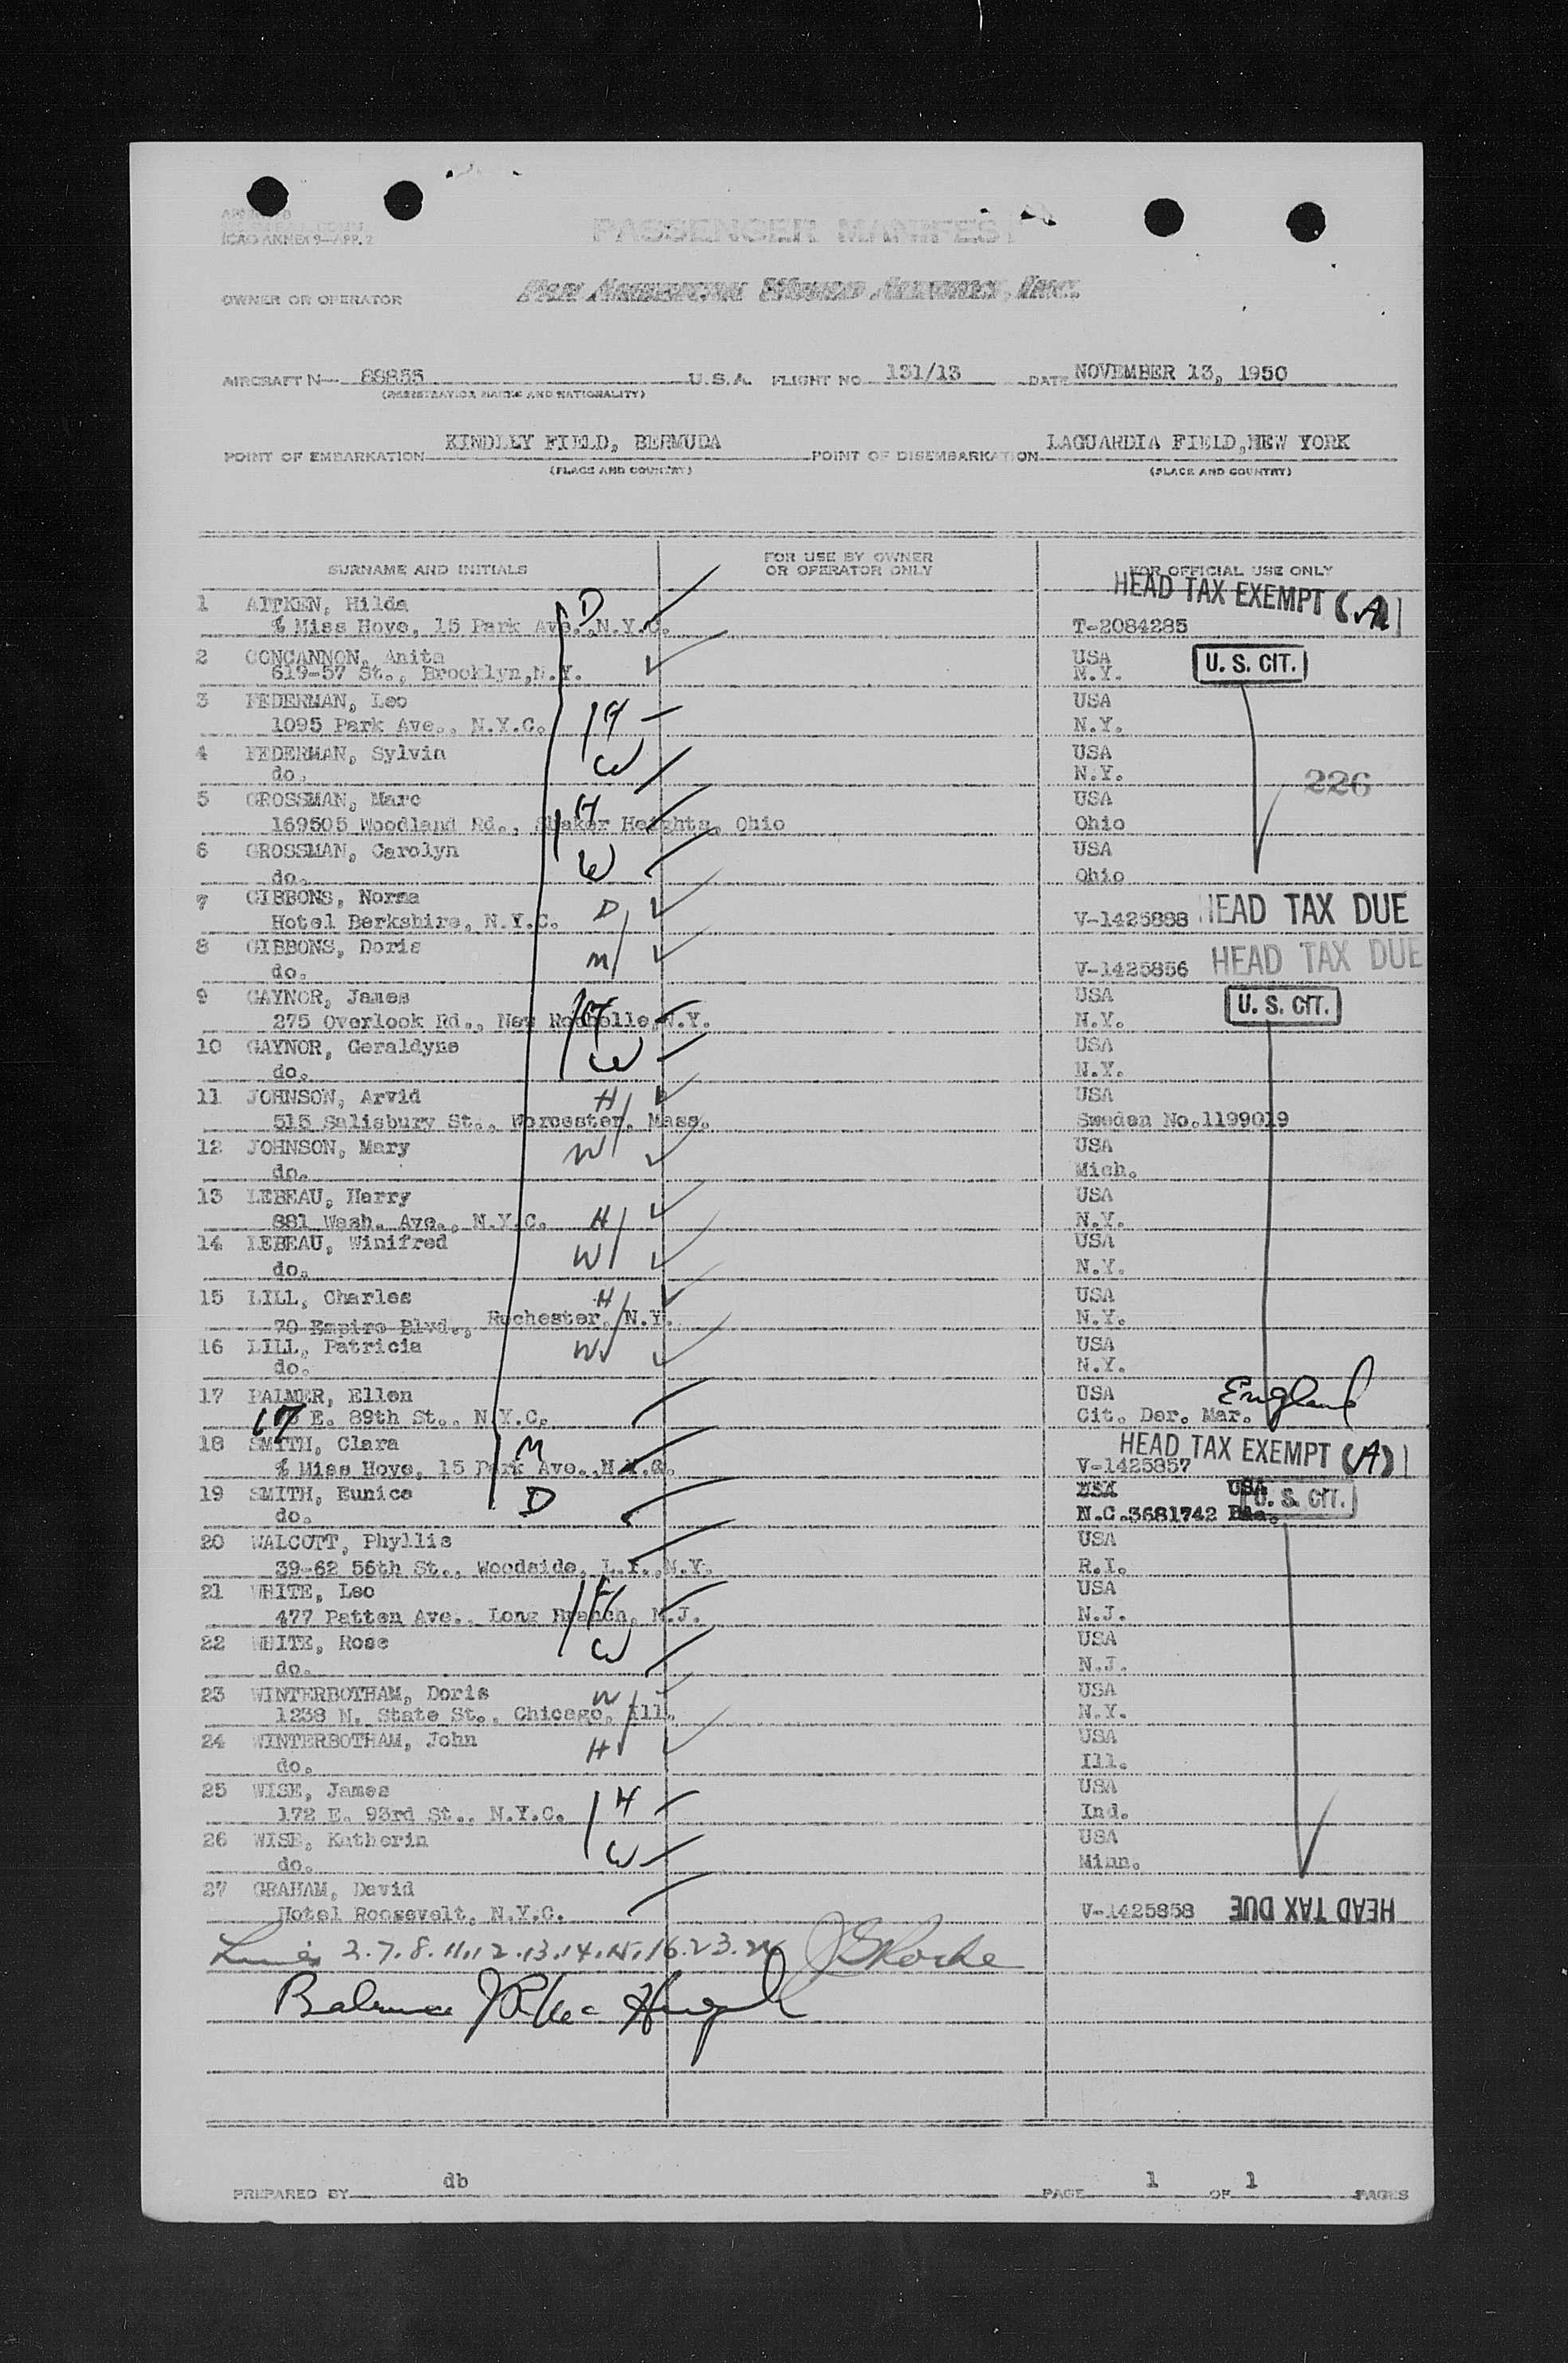 ICAO ANNEX 9—APP. 2
PASSENGER MANIFEST
OWNER OR OPERATOR PAN AMERICAN WORLD AIRWAYS, INC.
AIRCRAFT N— 88855 U.S.A. FLIGHT NO 131/13 DATE NOVEMBER 13, 1950
(REGISTRATION MARKS AND NATIONALITY)
POINT OF EMBARKATION KINDLEY FIELD, BERMUDA POINT OF DISEMBARKATION LAGUARDIA FIELD,NEW YORK
(PLACE AND COUNTRY) (PLACE AND COUNTRY)
SURNAME AND INITIALS FOR USE BY OWNER OR OPERATOR ONLY FOR OFFICIAL USE ONLY
1 AITKEN, Hilda D HEAD TAX EXEMPT (A)
% Miss Hoye, 15 Park Ave.,N.Y.C. T-2084285
2 CONCANNON, Anita USA U. S. CIT.
619-57 St., Brooklyn,N.Y. N.Y.
3 FEDERMAN, Leo H USA
1095 Park Ave., N.Y.C. N.Y.
4 FEDERMAN, Sylvia W USA
do. N.Y. 226
5 GROSSMAN, Marc H USA
169505 Woodland Rd., Shaker Heights, Ohio Ohio
6 GROSSMAN, Carolyn W USA
do. Ohio
7 GIBBONS, Norma D HEAD TAX DUE
Hotel Berkshire, N.Y.C. V-1425888
8 GIBBONS, Doris M HEAD TAX DUE
do. V-1425856
9 GAYNOR, James H USA U. S. CIT.
275 Overlook Rd., New Rochelle,N.Y. N.Y.
10 GAYNOR, Geraldyne W USA
do. N.Y.
11 JOHNSON, Arvid H USA
515 Salisbury St., Worcester, Mass. Sweden No.1199019
12 JOHNSON, Mary W USA
do. Mich.
13 LEBEAU, Harry USA
881 Wash. Ave., N.Y.C. H N.Y.
14 LEBEAU, Winifred W USA
do. N.Y.
15 LILL, Charles H USA
70 Empire Blvd., Rochester, N.Y. N.Y.
16 LILL, Patricia W USA
do. N.Y.
17 PALMER, Ellen USA England
17 E. 89th St., N.Y.C. Cit. Der. Mar.
18 SMITH, Clara M HEAD TAX EXEMPT (A)
% Miss Hoye, 15 Park Ave.,N.Y.C. V-1425857
19 SMITH, Eunice D USA U. S. CIT.
do. N.C.3681742
20 WALCOTT, Phyllis USA
39-62 56th St., Woodside, L.I.,N.Y. R.I.
21 WHITE, Leo H USA
477 Patten Ave., Long Branch, N.J. N.J.
22 WHITE, Rose W USA
do. N.J.
23 WINTERBOTHAM, Doris W USA
1238 N. State St., Chicago, Ill. N.Y.
24 WINTERBOTHAM, John H USA
do. Ill.
25 WISE, James H USA
172 E. 93rd St., N.Y.C. Ind.
26 WISE, Katherin W USA
do. Minn.
27 GRAHAM, David
Hotel Roosevelt, N.Y.C. V-1425858 HEAD TAX DUE
Lines 2.7.8.11.12.13.14.15.16.23.24
Balance
PREPARED BY db PAGE 1 OF 1 PAGES